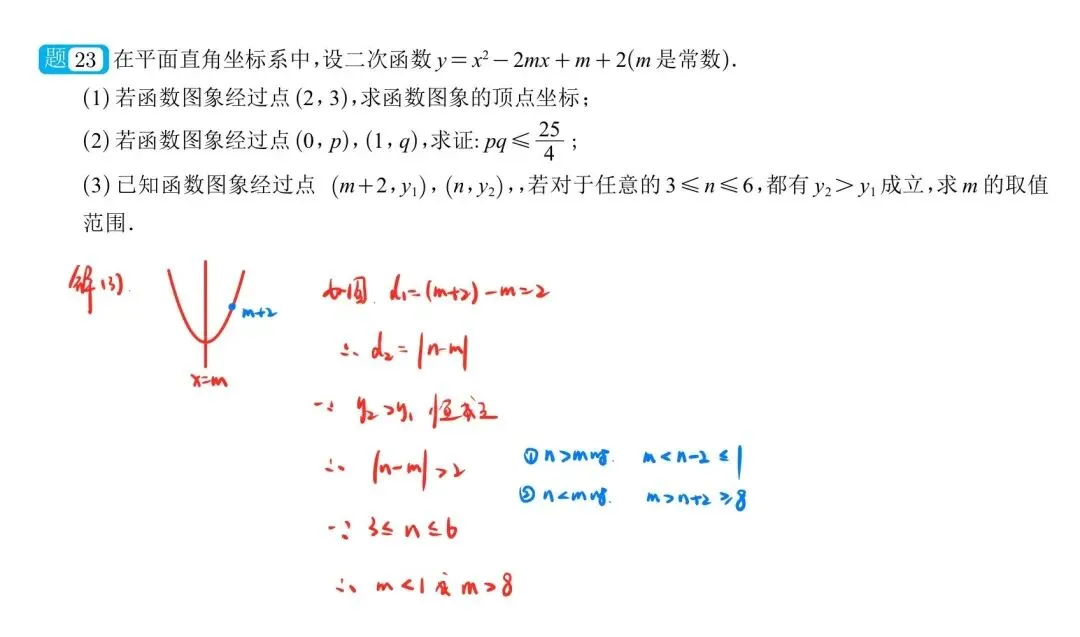 题 23 在平面直角坐标系中,设二次函数 y=x²-2mx+m+2(m 是常数).
(1) 若函数图象经过点 (2,3),求函数图象的顶点坐标;
(2) 若函数图象经过点 (0,p),(1,q),求证:pq≤25/4;
(3) 已知函数图象经过点 (m+2,y₁),(n,y₂),,若对于任意的 3≤n≤6,都有 y₂>y₁ 成立,求 m 的取值
范围.
解(3).
m+2
x=m
如图. d₁=(m+2)-m=2
∴ d₂=|n-m|
∵ y₂>y₁ 恒成立
∴ |n-m|>2
① n>m时. m<n-2≤1
② n<m时. m>n+2≥8
∵ 3≤n≤6
∴ m<1或m>8